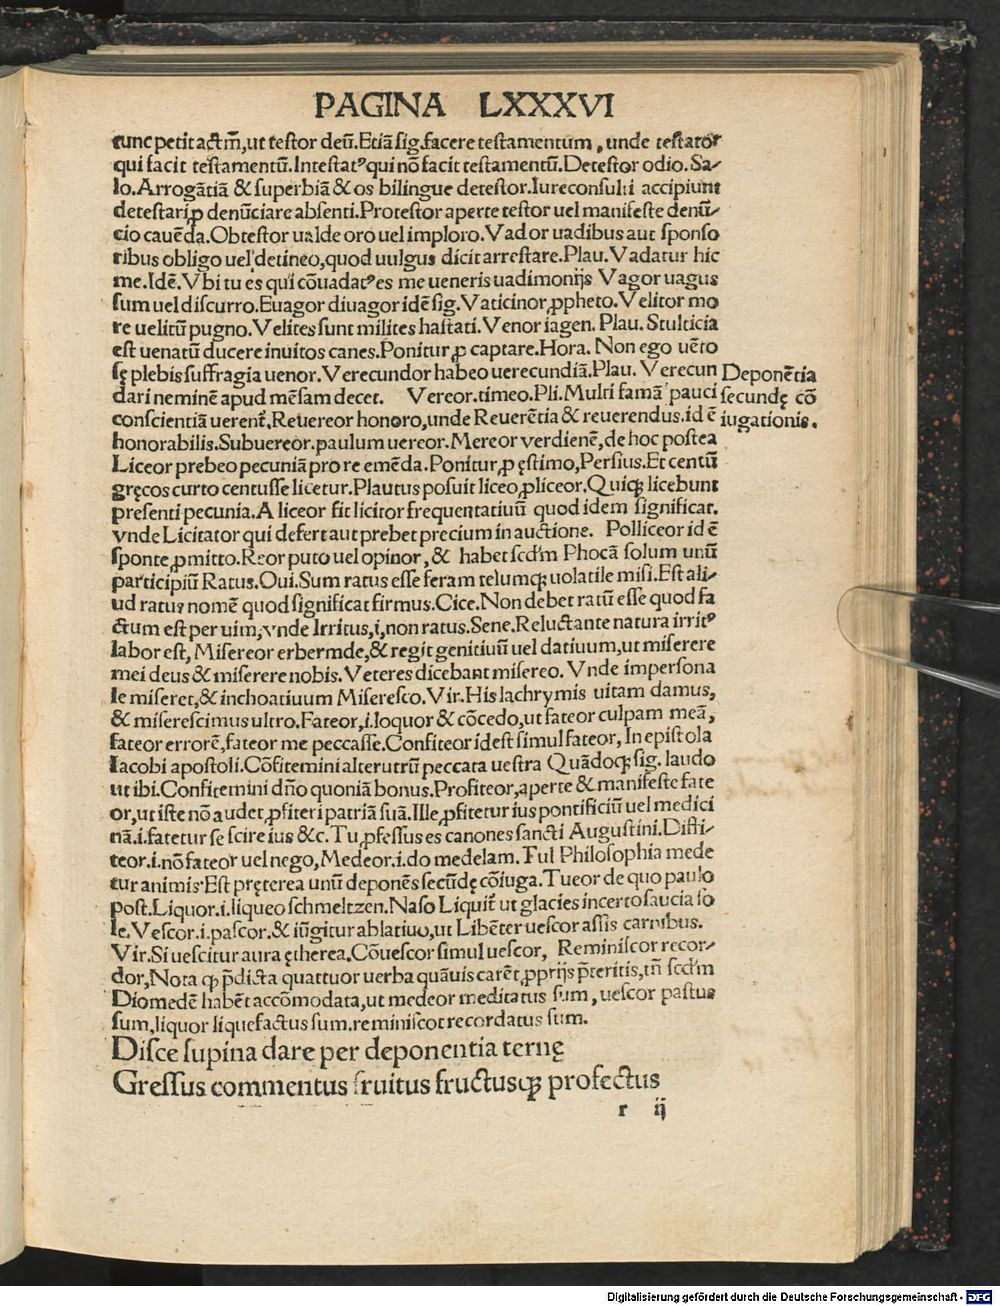 PAGINA LXXXVI
tunc petit actm̄,ut testor deū.Etiā sig.facere testamentum,unde testator
qui facit testamentū.Intestatꝰ qui nō facit testamentū.Detestor odio.Sa-
lo.Arrogātiā & superbiā & os bilingue detestor.Iureconsulti accipiunt
detestari ꝓ denūciare absenti.Protestor aperte testor uel manifeste denū-
cio cauēda.Obtestor ualde oro uel imploro.Vador uadibus aut sponso
ribus obligo uel detineo,quod uulgus dicit arrestare.Plau.Vadatur hic
me.Idē.Vbi tu es qui cōuadatꝰ es me ueneris uadimonijs Vagor uagus
sum uel discurro.Euagor diuagor idē sig.Vaticinor,ꝓpheto.Velitor mo
re uelitū pugno.Velites sunt milites hastati.Venor iagen.Plau.Stulticia
est uenatū ducere inuitos canes.Ponitur ꝓ captare.Hora. Non ego uēto
sę plebis suffragia uenor.Verecundor habeo uerecundiā.Plau. Verecun
dari neminē apud mēsam decet. Vereor.timeo.Pli.Multi famā pauci
conscientiā uerent᷑.Reuereor honoro,unde Reuerētia & reuerendus.id ē
honorabilis.Subuereor.paulum uereor.Mereor verdienē,de hoc postea
Deponētia
secundę cō
iugationis.
Liceor prebeo pecuniā pro re emēda.Ponitur,ꝓ ęstimo,Persius.Et centū
gręcos curto centusse licetur.Plautus posuit liceo,ꝓ liceor.Quiqꝫ licebunt
presenti pecunia.A liceor fit licitor frequentatiuū quod idem significat.
vnde Licitator qui defert aut prebet precium in auctione. Polliceor id ē
sponte ꝓmitto.Reor puto uel opinor,& habet scd'm Phocā solum unū
participiū Ratus.Oui.Sum ratus esse feram telumqꝫ uolatile misi.Est ali-
ud ratus nomē quod significat firmus.Cice.Non debet ratū esse quod fa
ctum est per uim,vnde Irritus,i,non ratus.Sene.Reluctante natura irritꝰ
labor est, Misereor erbermde,& regit genitiuū uel datiuum,ut miserere
mei deus & miserere nobis.Veteres dicebant misereo.Vnde impersona
le miseret,& inchoatiuum Miseresco.Vir.His lachrymis uitam damus,
& miserescimus ultro.Fateor,i.loquor & cōcedo,ut fateor culpam meā,
fateor errorē,fateor me peccasse.Confiteor idest simul fateor, In epistola
Iacobi apostoli.Cōfitemini alterutrū peccata uestra Quādoqꝫ sig. laudo
ut ibi.Confitemini dn̄o quoniā bonus.Profiteor,aperte & manifeste fate
or,ut iste nō audet,ꝓfiteri patriā suā.Ille,ꝓfitetur ius pontificiū uel medici
nā.i.fatetur se scire ius &c.Tu,ꝓfessus es canones sancti Augustini.Diffi-
teor.i.nō fateor uel nego,Medeor.i.do medelam. Ful Philosophia mede
tur animis Est pręterea unū deponēs secūdę cōiuga.Tueor de quo paulo
post.Liquor.i.liqueo schmeltzen.Naso Liquit᷑ ut glacies incerto saucia so
le.Vescor.i.pascor.& iūgitur ablatiuo,ut Libēter uescor assis carnibus.
Vir.Si uescitur aura ętherea.Cōuescor simul uescor, Reminiscor recor-
dor,Nota qꝫ p̄dicta quattuor uerba quāuis carēt,ꝓprijs p̄teritis,tn̄ scd'm
Diomedē habēt accōmodata,ut medeor meditatus sum,uescor pastus
sum,liquor liquefactus sum.reminiscor recordatus sum.
Disce supina dare per deponentia ternę
Gressus commentus fruitus fructusqꝫ profectus
r ij
Digitalisierung gefördert durch die Deutsche Forschungsgemeinschaft - DFG